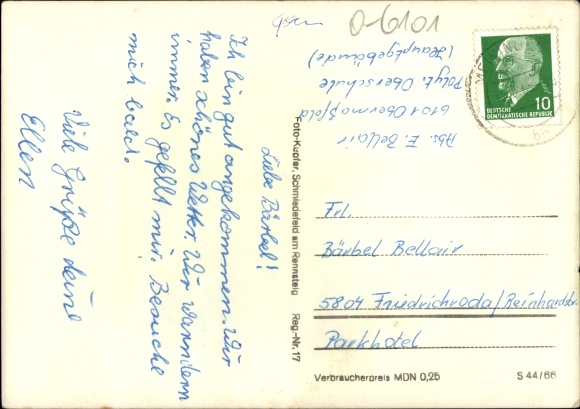 Liebe Bärbel!
Ich bin gut angekommen. Wir
haben schönes Wetter. Wir wandern
immer. Es gefällt mir. Besuche
mich bald.
Viele Grüße deine
Ellen
O-6101
Abs. E. Bellair
6101 Obermaßfeld
Polyt. Oberschule
(Hauptgebäude)
DEUTSCHE
DEMOKRATISCHE REPUBLIK
10
Foto-Kupfer, Schmiedefeld am Rennsteig Reg.-Nr. 17
Frl.
Bärbel Bellair
5804 Friedrichroda/Reinhardsbr.
Parkhotel
Verbraucherpreis MDN 0,25
S 44/66